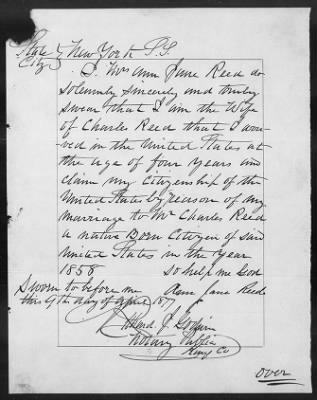 State of New York S.S.
City
I. Mrs Ann Jane Reed do
Solemnly sincerely and truly
swear that I am the Wife
of Charles Reed that I arri-
ved in the United States at
the age of four years and
claim my Citizenship of the
United States by reason of my
marriage to Mr Charles Reed
a native Born Citizen of said
United States in the Year
1858 So help me God
Sworn to before me Ann Jane Reed
this 9th day of April 187
J. Godwin
Notary Public
Kings Co
over